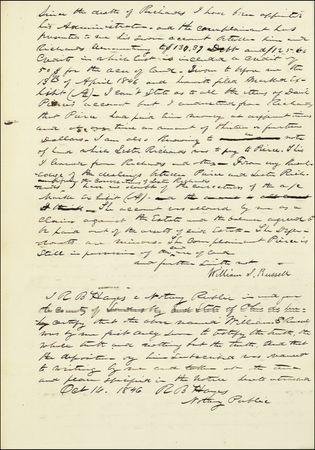 Since the death of Richards I have been appointed
his Administrator and the complainant has
presented to me his sworn account between him and
Richards amounting to $130.37 Debt and $125.60
Credit in which list is included a credit of
50 $ for the acre of land. Sworn to before me the
18th of April 1846 and herewith filed marked Ex-
hibit (A). I can't state as to all the items of Said
Pierce's account but I understood from Richards
that Pierce had paid him money at different times
and at one time an amount of thirteen or fourteen
Dollars. I am also knowing to
of land which Lester Richards was to pay to Pierce. This
I learned from Richards and others. From my knowl-
edge of the dealings between Pierce and Lester Rich-
ards, I have no doubt of the correctness of the a/c
Marked Exhibit (A)
The account was allowed by me as a
Claim against the Estate and the balance agreed to
be paid out of the assets of said Estate. The Defen-
dants are minors. The Complainant Pierce is
Still in possession of the acre of land
and further saith not
William S. Russell
I R B Hayes a Notary Public in and for
the County of Sandusky and State of Ohio do here-
by certify that the above named William S Russell
was by me first duly sworn to testify the truth, the
whole truth and nothing but the truth, and that
the deposition by him subscribed was reduced
to writing by me and taken at the time
and place specified in the notice hereto attached
Oct 14. 1846 R B Hayes
Notary Public